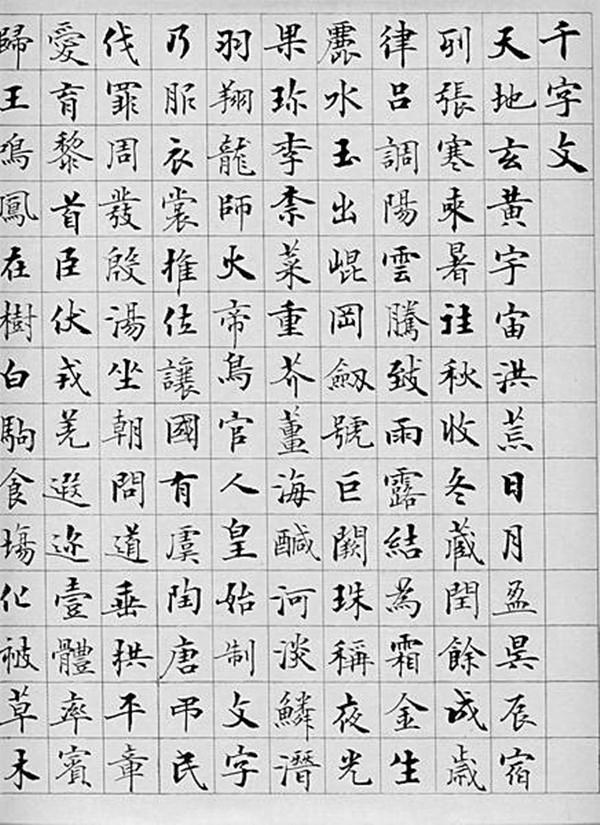 千字文
天地玄黃宇宙洪荒日月盈昃辰宿
列張寒來暑往秋收冬蔵閏餘成歲
律呂調陽雲騰致雨露結為霜金生
麗水玉出崐岡劒號巨闕珠稱夜光
果珎李柰菜重芥薑海醎河淡鱗潛
羽翔龍師火帝鳥官人皇始制文字
乃服衣裳推位讓國有虞陶唐弔民
伐罪周發殷湯坐朝問道垂拱平章
愛育黎首臣伏戎羌遐迩壹體率賓
歸王鳴鳳在樹白駒食塲化被草木